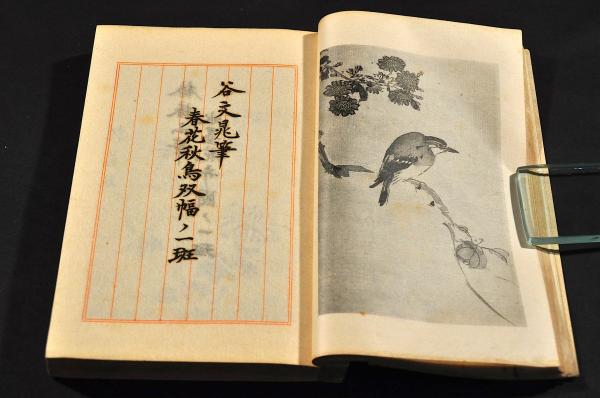 谷文晁筆
春花秋鳥双幅ノ一斑